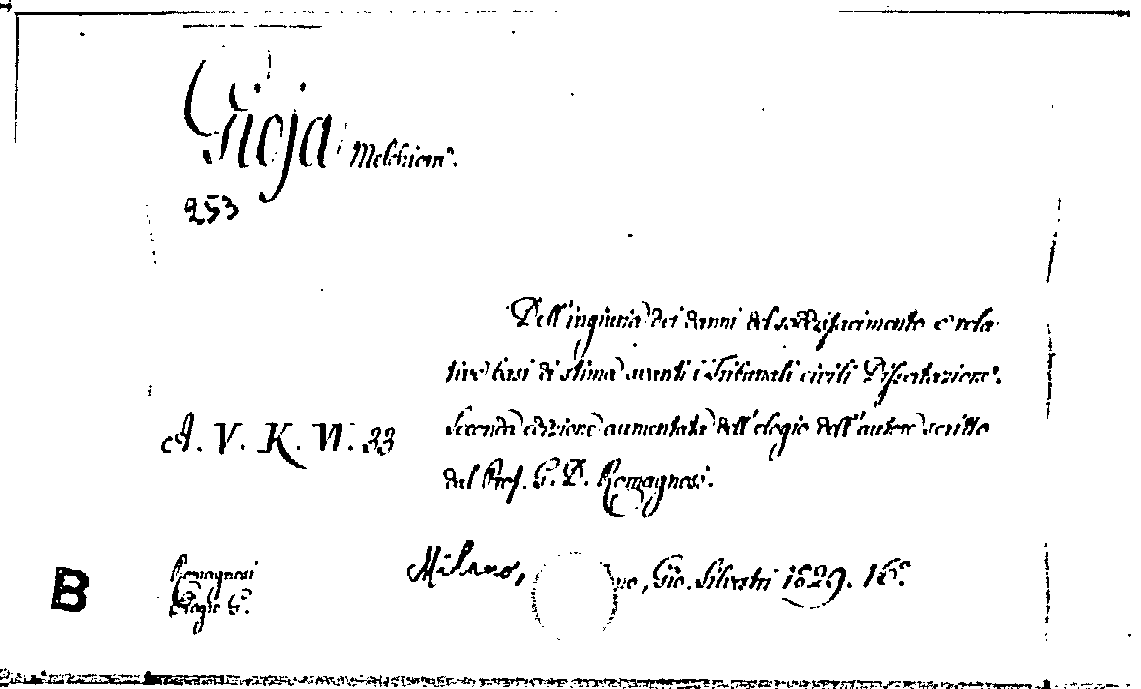 Gioja Melchiorre.
253
Dell'ingiuria dei danni del soddisfacimento e rela-
tive basi di stima avanti i Tribunali civili Dissertazione.
A. V. K. VI. 33
Seconda edizione aumentata dell'elogio dell'autore scritto
dal Prof. G. D. Romagnosi.
Milano, no, Gio. Silvestri 1829. 16.º
B
Romagnosi
Elogio G.